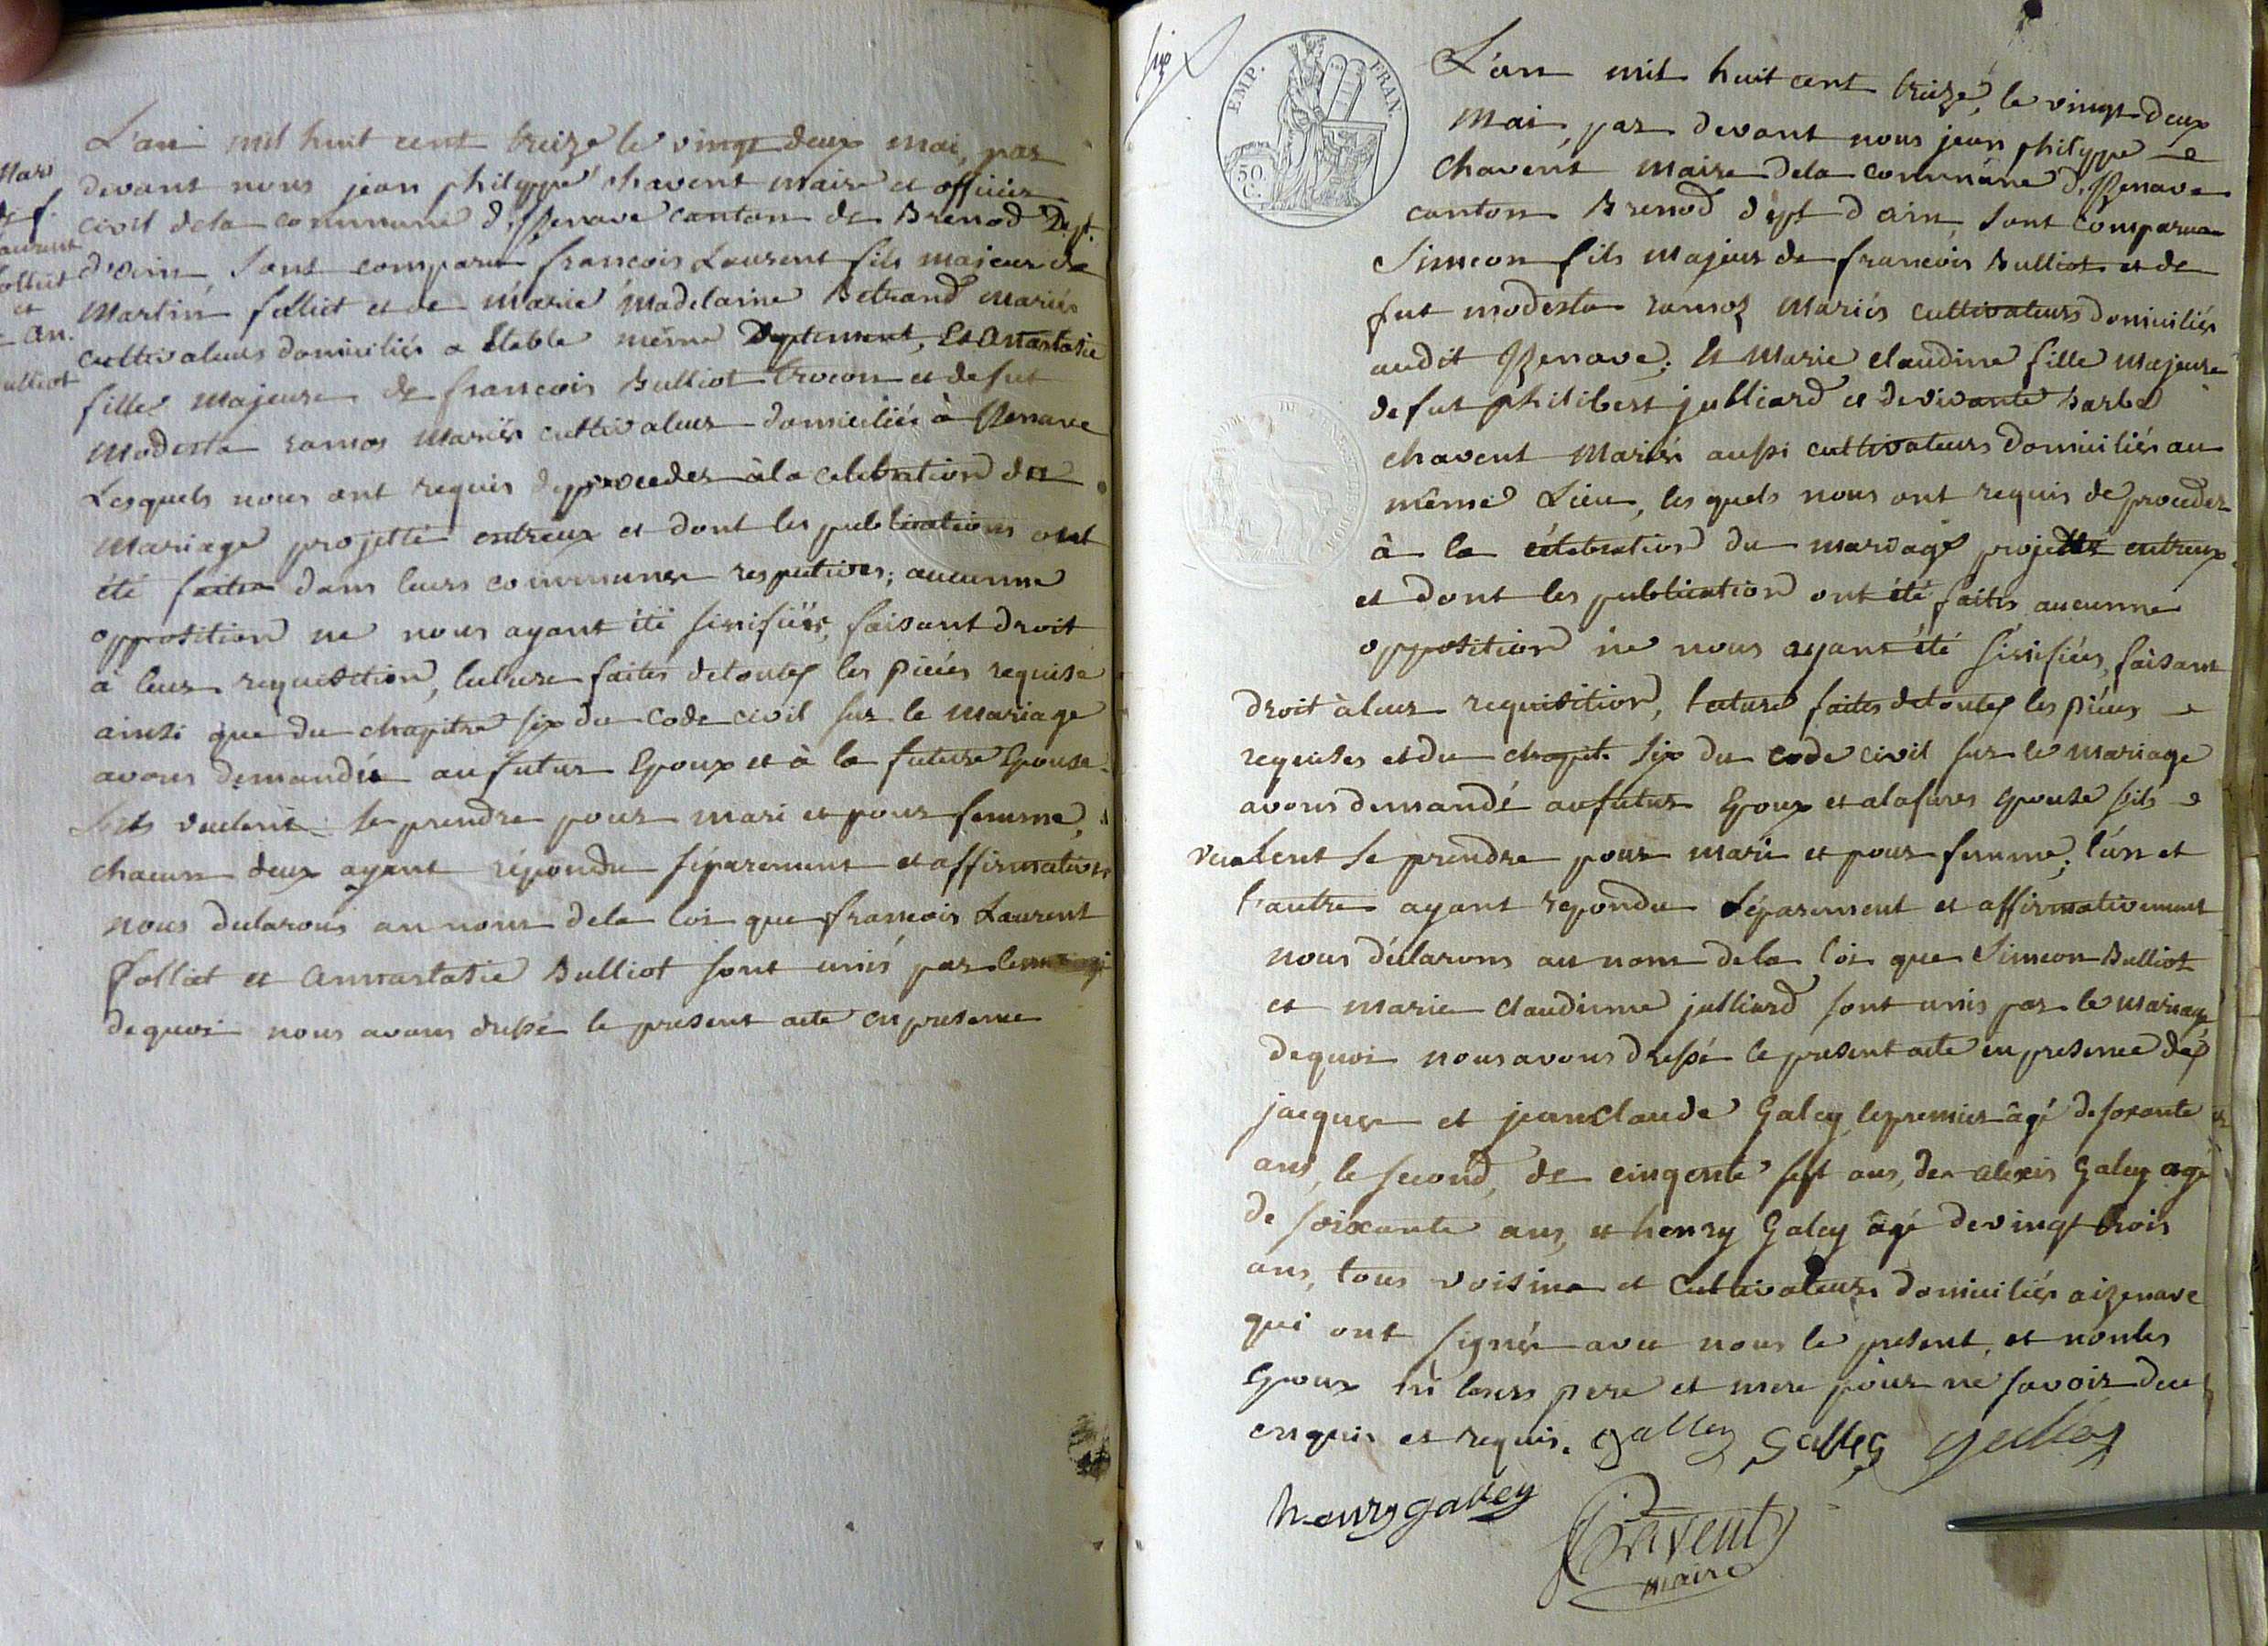 Mar
de f.
Laurent
folliet
et
an.
Bulliot
L'an mil huit cent treize le vingt deux mai, par
devant nous jean philyppe chavent maire et officier
civil dela commune d'Izenave canton de Brenod Dept.
d'ain sont comparu francois Laurent fils majeur de
Martin folliet et de marie madelaine Betrand mariés
cultivateurs domiciliés a Etable même Deptement, Et Anastasie
fille majeure de francois Bulliot trocon et de fut
modesta ramos mariés cultivateur domiciliés à Izenave
Lesquels nous ont requis de proceder à la celebration du
mariage projetté entreux et dont les publications ont
été faites dans leurs communes respectives; aucunne
opposition ne nous ayant été sinifiée, faisant droit
à leur requisition, lecture faites detoutes les piéces requise
ainsi que du chapitre six du Code civil sur le mariage
avons demandée au futur Epoux et à la future Epouse
sils veulent se prendre pour mari et pour femme,
chacun deux ayant répondu séparement et affirmative
nous declarons au nom dela loi que francois Laurent
folliet et annastasie Bulliot sont unis par le mariage
dequoi nous avons dressé le present acte en presence
six
EMP. FRAN.
50 C.
L'an mil huit cent treize, le vingt deux
mai, par devant nous jean philyppe
chavent maire dela commune d'Izenave
canton Brenod dept d'ain, sont comparu
Simeon fils majeur de francois Bulliot et de
fut modesta ramoz mariés cultivateurs domiciliés
audit Izenave; et marie claudine fille majeure
de fut philibert julliard et de vivante barbe
chavent mariés aussi cultivateurs domiciliés au
même Lieu, les quels nous ont requis de proceder
à la célebration du mariage projetté entreux
et dont les publication ont été faites aucunne
opposition ne nous ayant été sinifiées, faisant
droit à leur requisition, lecture faites detoutes les piéces
requises et du chapit. six du code civil sur le mariage
avons demandé au futur Epoux et a la futures epouse sils
veulent se prendre pour mari et pour femme; l'un et
l'autre ayant repondu séparement et affirmativement
nous déclarons au nom dela loi que Simeon Bulliot
et marie Claudinne julliard sont unis par le mariage
dequoi nous avons dressé le present acte en presence de
jacques et jean Claude Galey le premier âgé de soxante
ans, le second, de cinqente sept ans, de alexis Galey agé
de soixante ans, et henry Galey âgé de vingt trois
ans, tous voisins et Cultivateurs domiciliés aizenave
qui ont signés avec nous le present, et non les
Epoux ni leurs pere et mere pour ne savoir de ce
enquis et requis. galley Galley galley
henry galley
Chavent
maire